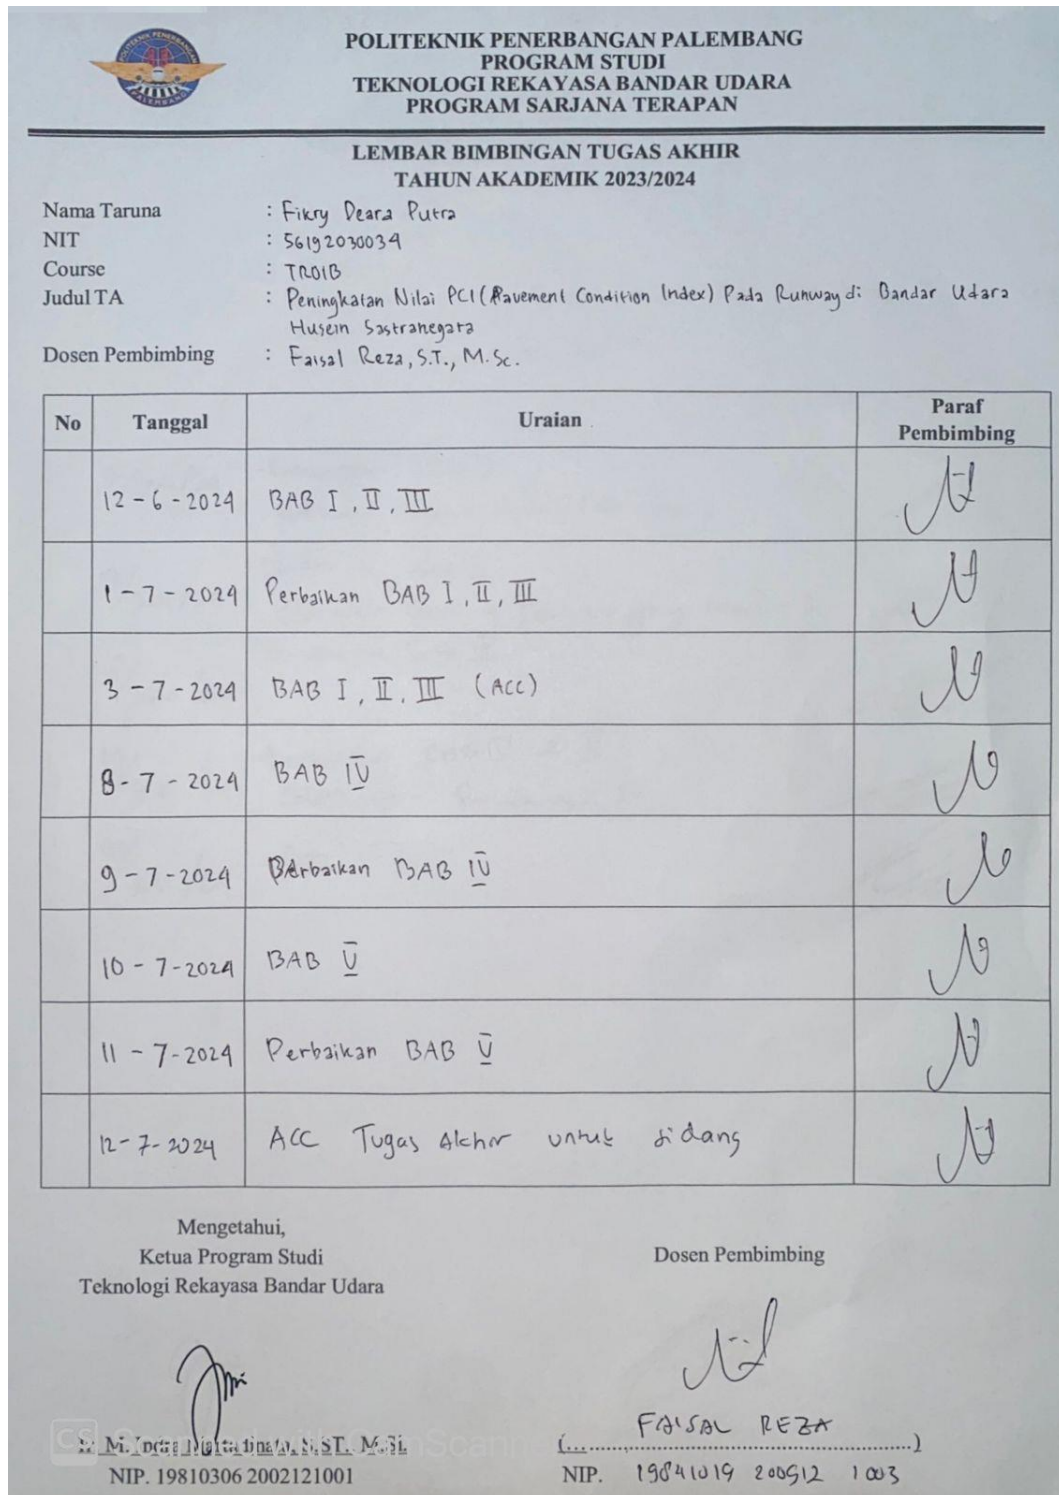 POLITEKNIK PENERBANGAN
PALEMBANG
POLITEKNIK PENERBANGAN PALEMBANG
PROGRAM STUDI
TEKNOLOGI REKAYASA BANDAR UDARA
PROGRAM SARJANA TERAPAN
LEMBAR BIMBINGAN TUGAS AKHIR
TAHUN AKADEMIK 2023/2024
Nama Taruna : Fikry Deara Putra
NIT : 56192030034
Course : TRO1B
Judul TA : Peningkatan Nilai PCI (Pavement Condition Index) Pada Runway di Bandar Udara
Husein Sastranegara
Dosen Pembimbing : Faisal Reza, S.T., M.Sc.
No Tanggal Uraian Paraf
Pembimbing
12 - 6 - 2024 BAB I, II, III
1 - 7 - 2024 Perbaikan BAB I, II, III
3 - 7 - 2024 BAB I, II, III (ACC)
8 - 7 - 2024 BAB IV
9 - 7 - 2024 Perbaikan BAB IV
10 - 7 - 2024 BAB V
11 - 7 - 2024 Perbaikan BAB V
12 - 7 - 2024 ACC Tugas Akhir untuk sidang
Mengetahui,
Ketua Program Studi
Teknologi Rekayasa Bandar Udara
Dosen Pembimbing
CS Scanned with CamScanner
M. Indra Martadinata, S.ST., M.Si.
NIP. 19810306 2002121001
(... FAISAL REZA ...)
NIP. 19841019 200912 1 003